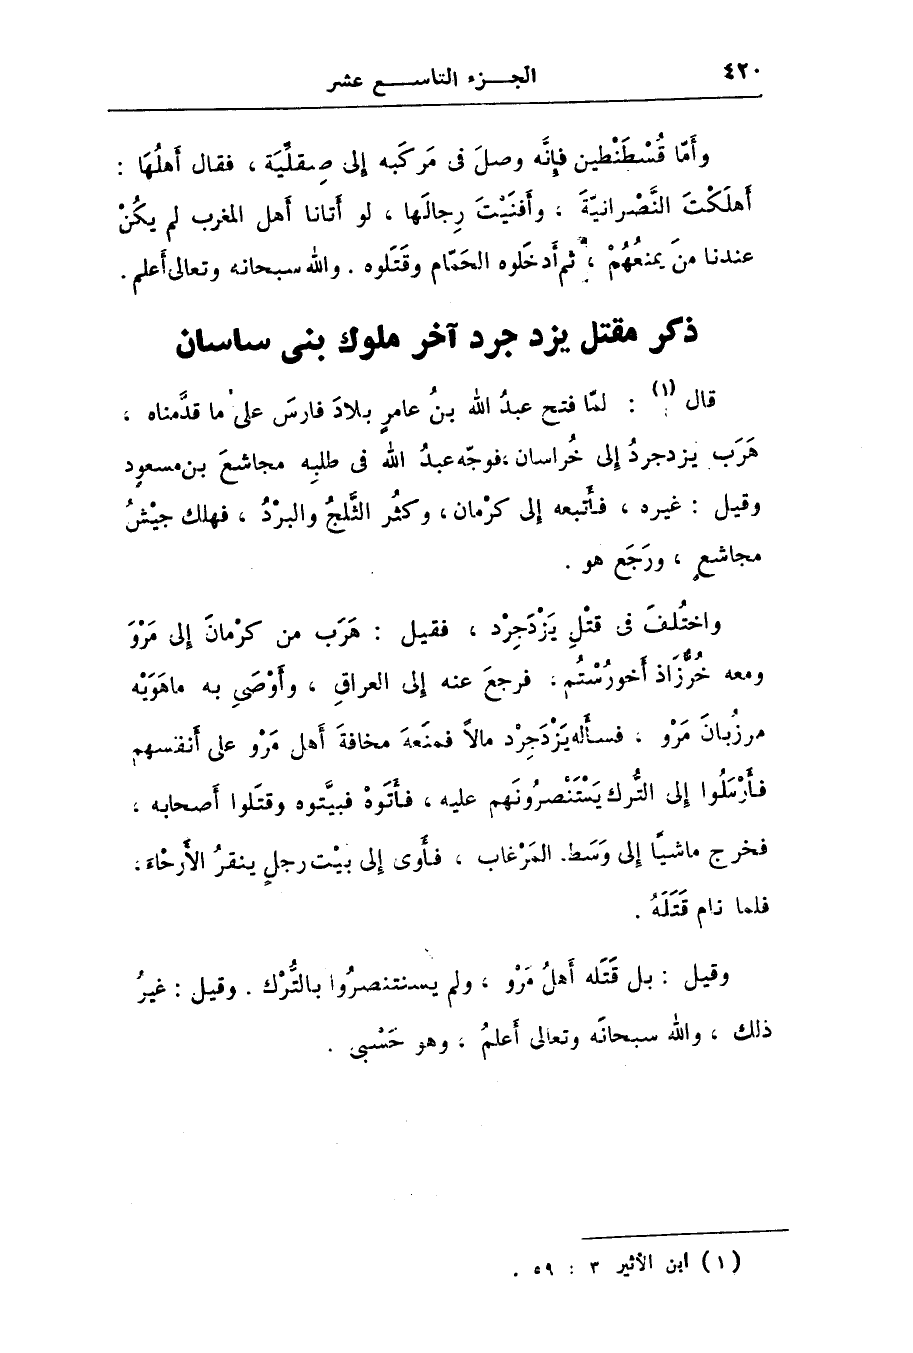 ٤٢٠
الجـــزء التاســـع عشر
وأمّا قُسْطَنْطين فإنَّه وصلَ فى مَركَبه إلى صِقلِّيَة ، فقال أهلُهَا :
أهلَكْتَ النَّصْرانيَّةَ ، وأفنَيْتَ رِجالَها ، لو أتانا أهل المغرب لم يكُنْ
عندنا منَ يمنعُهُمْ ، ثم أدخَلوه الحَمّام وقَتَلوه . والله سبحانه وتعالى أعلم .
ذكر مقتل يزد جرد آخر ملوك بنى ساسان
قال (١) : لمّا فتح عبدُ الله بنُ عامرٍ بلادَ فارسَ على ما قدَّمناه ،
هَرَب يزدجردُ إلى خُراسان ، فوجّه عبدُ الله فى طلبِه مجاشعَ بن مسعودٍ
وقيل : غيره ، فأتبعه إلى كرْمان ، وكثُر الثَّلجُ والبرْدُ ، فهلك جيْشُ
مجاشعٍ ، ورَجَع هو .
واختُلفَ فى قتْلِ يَزْدَجِرْد ، فقيل : هَرَب من كرْمانَ إلى مَرْوَ
ومعه خُرَّزاذ أخورُسْتُم ، فرجعَ عنه إلى العراقِ ، وأوْصَى به ماهَوَيْه
مرزُبانَ مَرْو ، فسأله يَزْدَجِرْد مالاً فمنَعهَ مخافةَ أهل مَرْو على أنفسهم
فأرْسَلُوا إلى التُّرك يَسْتَنْصرُونَهم عليه ، فأتَوهْ فبيَّتوه وقتَلوا أصحابه ،
فخرج ماشيًا إلى وَسَط. المَرْغاب ، فأوى إلى بيْت رجلٍ ينقرُ الأرْحَاءَ ،
فلما نام قَتَلَهُ .
وقيل : بل قَتَله أهلُ مَرْو ، ولم يستنصرُوا بالتُّرْك . وقيل : غيرُ
ذلك ، والله سبحانَه وتعالى أعلمُ ، وهو حَسْبى .
(١) ابن الأثير ٣ : ٥٩ .